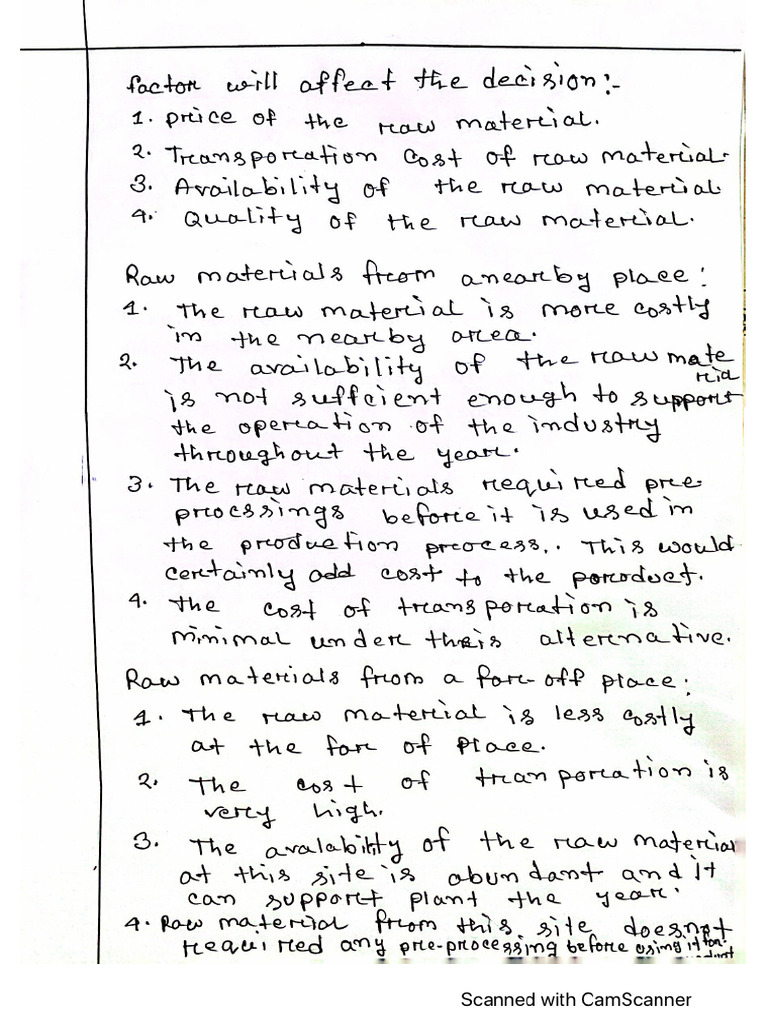 factor will affect the decision:-
1. price of the raw material.
2. Transporation cost of raw material.
3. Availability of the raw material
4. Quality of the raw material.
Raw materials from a nearby place:
1. The raw material is more costly
in the nearby area.
2. The availability of the raw mate
rial
is not suffcient enough to support
the operation of the industry
throughout the year.
3. The raw materials required pre
procssings before it is used in
the production process.. This would
certainly add cost to the poroduct.
4. the cost of transporation is
minimal under this alternative.
Raw materials from a far-off place:
1. The raw material is less costly
at the far of place.
2. The cost of tranporation is
very high.
3. The avalability of the raw material
at this site is abundant and it
can support plant the year.
4. Raw material from this site doesnot
required any pre-processing before using it for
Scanned with CamScanner